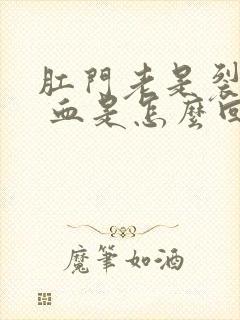 肛門老是裂
血是怎麼回
魔筆如酒